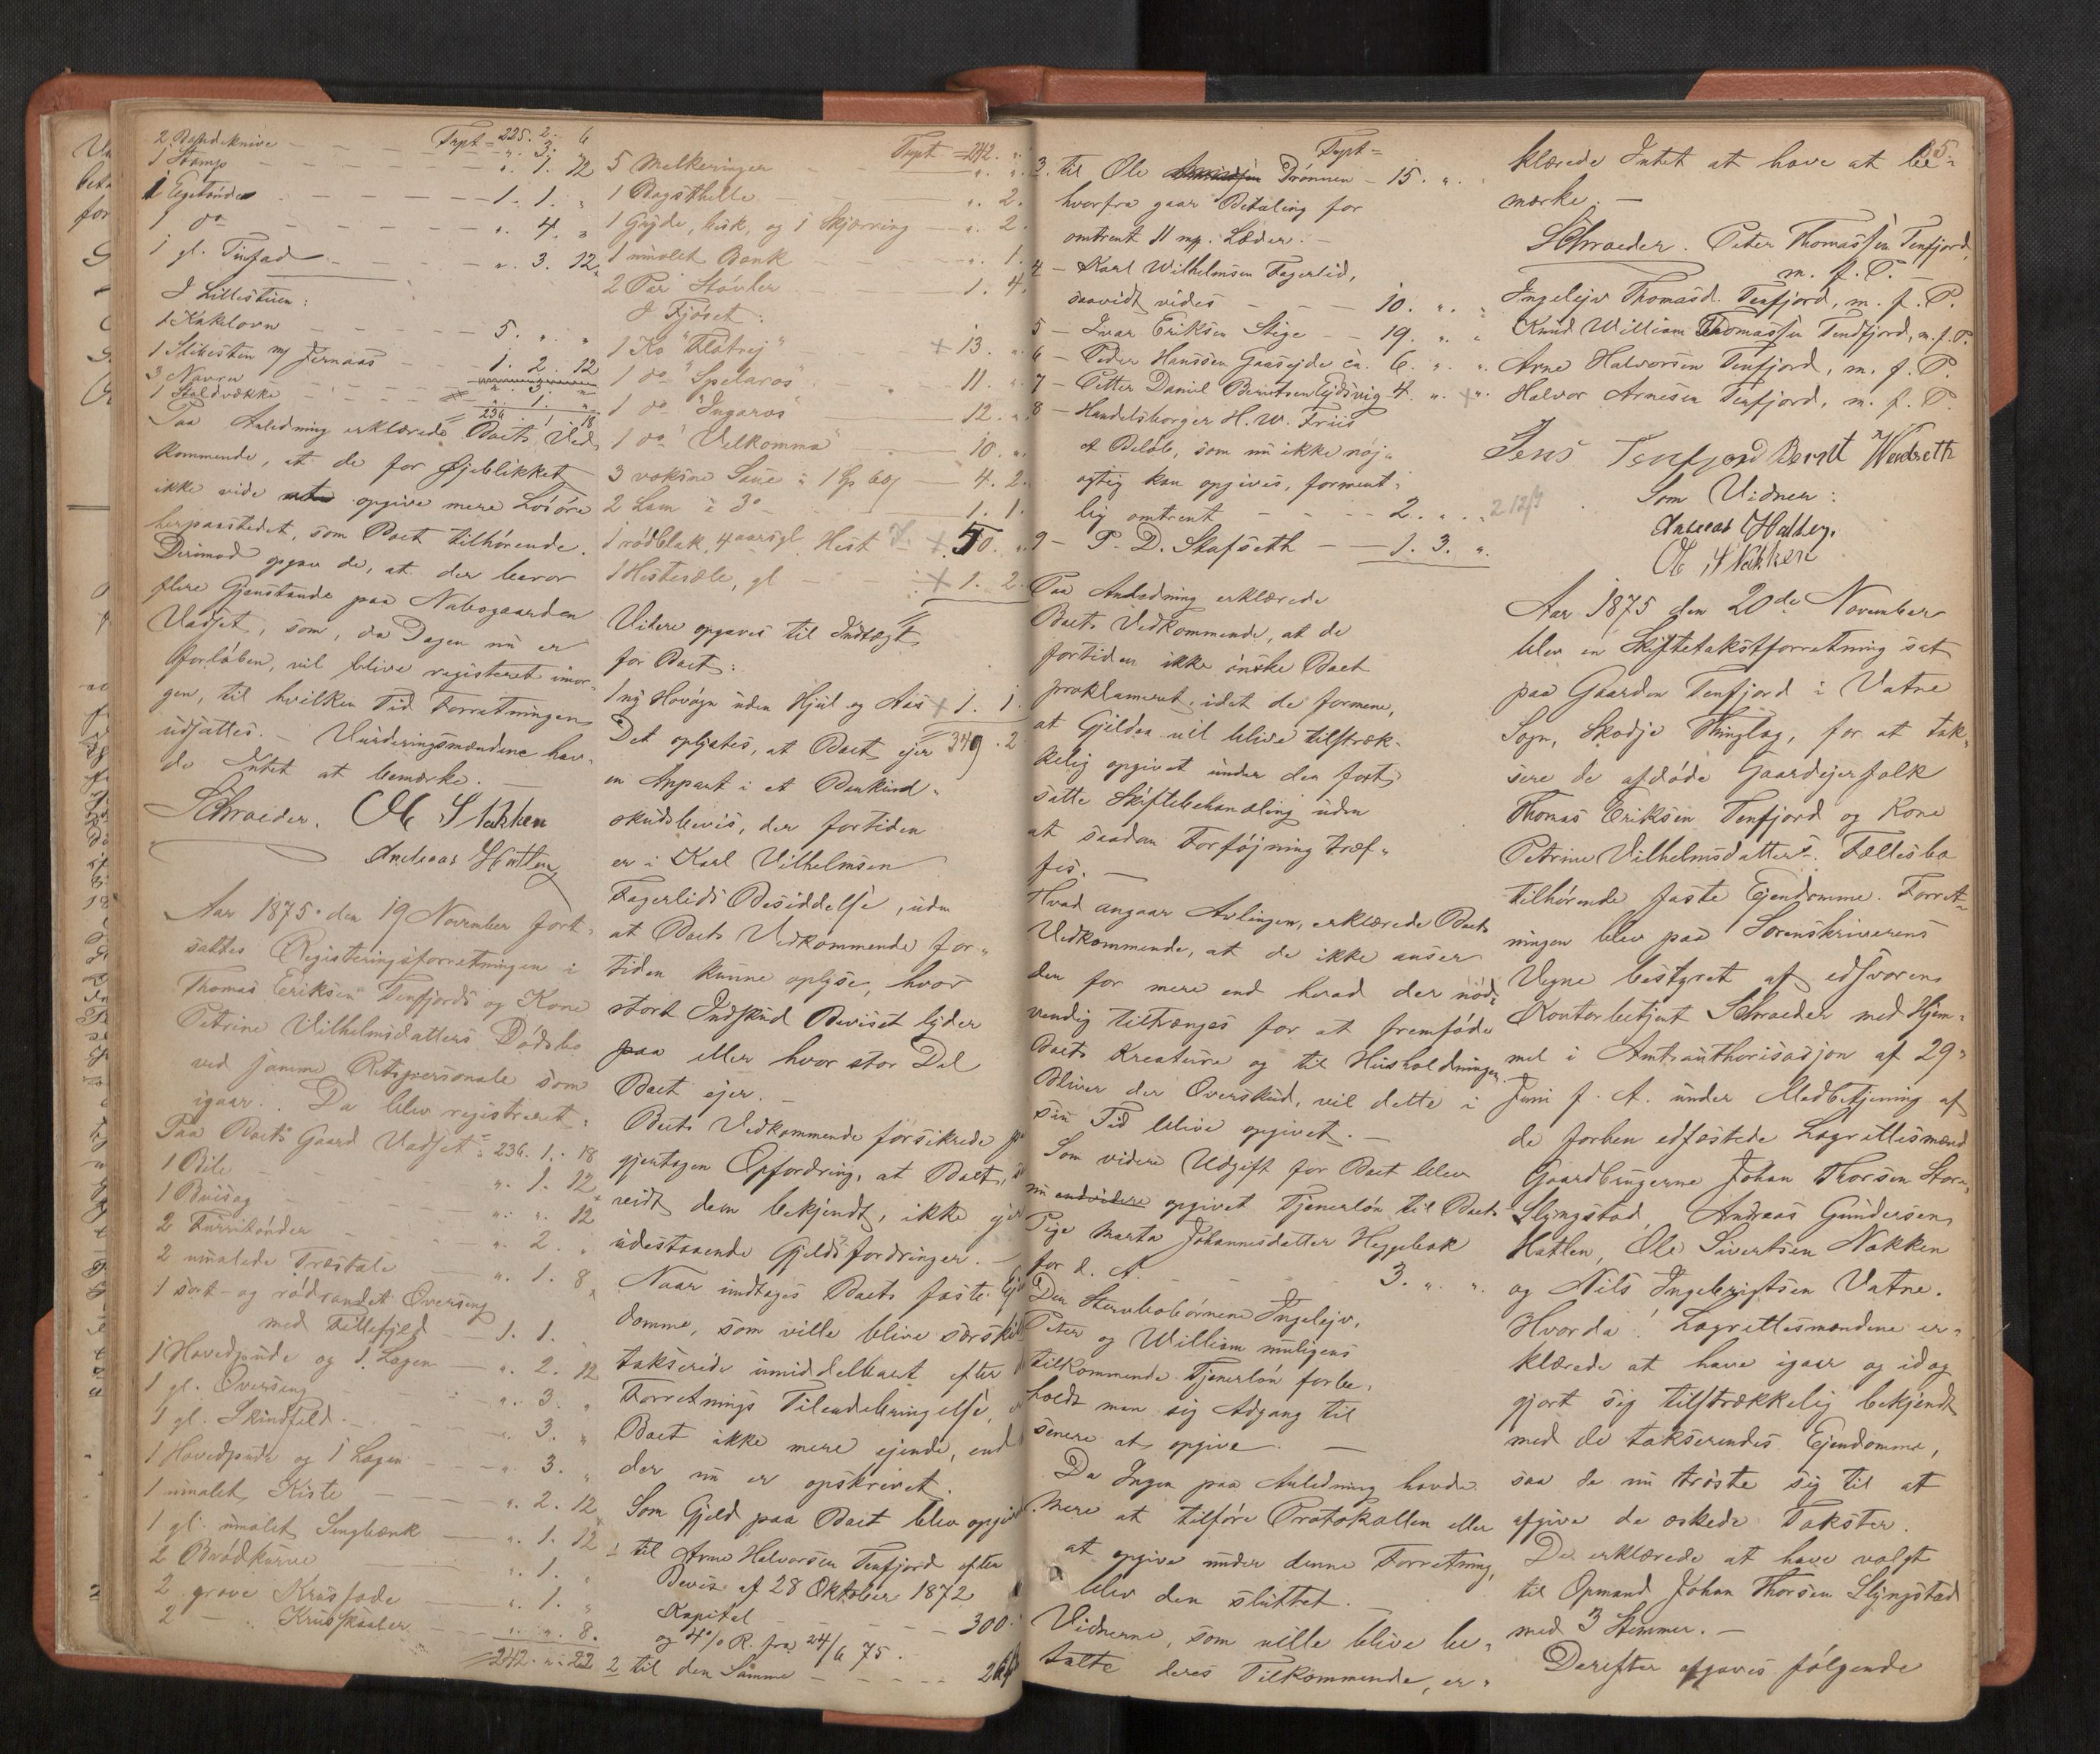 Trpt = 225. 2. 6
2 Baandknive - - - - - ". 3. "
1 Stamp - - - - - ". 1. 12
1 Egetønde - - - - - 1. 1. "
1 do - - - - ". 4. "
1 gl. Tinfad - - - - ". 3. 12
I Lillestuen:
1 Kakkelovn - - - - 5. ". "
1 Slibesten m/ Jernaas - - 1. 2. 12
3 Navre - - - - ". 3. "
1 - - - - ". 1. "
236. 1. 18
Paa Anledning erklærede Boets Ved-
kommende, at de for Øjeblikket
ikke vide at opgive mere Løsøre
herpaastedet, som Boet tilhørende.
Derimod opgav de, at der beror
flere Gjenstande paa Nabogaarden
Vadset, som, da Dagen nu er
forløben, vil blive registreret imor-
gen, til hvilken Tid Forretningen
udsattes. - Vurderingsmændene hav-
de Intet at bemærke. -
Schroeder. Ole S Nakken
Andreas Hatlen
Aar 1875 den 19 November fort-
sattes Registeringsforretningen i
Thomas Eriksen Tenfjords og Kone
Petrine Vilhelmsdatters Dødsbo
ved samme Retspersonale som
igaar. Da blev registreret:
Paa Boets Gaard Vadset = 236. 1. 18
1 Bile - - - - ". 1. 12
1 Buesag - - - - ". ". 12
2 Turritønder - - - - ". 2. "
2 umalede Træstole - - ". 1. 8
1 sort- og rødrandet Overseng
med Fittefjeld - - 1. 1. "
1 Hovedpude og 1 Lagen - ". 2. 12
1 gl. Overseng - - - ". 3. "
1 gl. Skindfeld - - - ". 3. "
1 Hovedpude og 1 Lagen - - ". 3. "
1 umalet Kiste - - - ". 2. 12
1 gl. umalet Sengbænk - - ". 1. 12
2 Brødkurve - - - ". 1. "
2 grove Krusfade - - ". 1. "
2 - " - Krusskaaler - - ". ". 8.
242. ". 22
Trpt = 242. "
5 Melkeringer - - - ". ".
1 Bagsthelle - - - ". 2.
1 Gryde, besk. og 1 Skjærring - ". 2.
1 umalet Bænk - - - ". 1.
2 Par Støvler - - - 1. 4.
I Fjøset:
1 Ko "Flatrej" - + 13. ".
1 do "Spelaros" - 11. ".
1 do "Ingaros" - 12. ".
1 do "Velkomma" - 10. ".
3 voksne Saue à 1 Sp 60 s - 4. 2.
2 Lam à 3 o - - - 1. 1.
1 rødblak, 4 aarsgl. Hest + 50. ".
1 Hestesæle, gl - - + 1. 2.
Videre opgaves til Indtægt
for Boet:
1 ny Hovøgn uden Hjul og Aas + 1. 1.
Det oplystes, at Boet ejer 349. 2
en Anpart i et Bankind-
skudsbevis, der fortiden
er i Karl Vilhelmsen
Fagerlids Besiddelse, uden
at Boets Vedkommende for-
tiden kunne oplyse, hvor
stort Indskud Beviset lyder
paa eller hvor stor Del
Boet ejer. -
Boets Vedkommende forsikrede på
gjentagen Opfordring, at Boet, så
vidt dem bekjendt, ikke ejer
udestaaende Gjeldsfordringer. -
Naar undtages Boets faste Ej
domme, som ville blive særskil
takserede umiddelbart efter
Forretnings Tilendebringelse,
Boet ikke mere ejende, end
der nu er opskrevet.
Som Gjeld paa Boet blev opgivet
1 til Arne Halvorsen Tenfjord efter
Bevis af 28 Oktober 1872
Kapital - - - 300.
og 4% R. fra 24/6 75.
2 til den Samme - - - -
Trpt =
3. til Ole Drønnen - 15. ". "
hvorfra gaar Betaling for
omtrent 11 mp. Læder. -
4 - Karl Wilhelmsen Fagerlid,
saavidt vides - - - 10. ". "
5 - Ivar Eriksen Stige - - 19. ". "
6 - Peder Hanssen Gaasejde ca. 6. ". "
7 - Petter Daniel Berntsen Ejdsvig 4. ". "
8 - Handelsborger H. W. Friis
et Beløb, som nu ikke nøj-
agtig kan opgives, forment-
lig omtrent - - - 2. ". "
9 - P. D. Skafseth - - 1. 3. ".
Paa Anledning erklærede
Boets Vedkommende, at de
fortiden ikke ønske Boet
proklameret, idet de formene,
at Gjelden vil blive tilstræk-
kelig opgivet under den fort-
satte Skiftebehandling uden
at saadan Forføjning træf-
fes. -
Hvad angaar Avlingen, erklærede Boets
Vedkommende, at de ikke anser
den for mere end hvad der nød-
vendig tiltrænges for at fremføde
Boets Kreature og til Husholdningen.
Bliver der Overskud, vil dette i
sin Tid blive opgivet. -
Som videre Udgift for Boet blev
nu endvidere opgivet Tjenerløn til Boets
Pige Marta Johannesdatter Heggebak
for d. A. - - - 3. ". ".
Den Stervbobørnene Ingelejv,
Peter og William muligens
tilkommende Tjenerløn forbe-
holdt man sig Adgang til
senere at opgive. -
Da Ingen paa Anledning havde
mere at tilføre Protokollen eller
at opgive under denne Forretning,
blev den sluttet. -
Vidnerne, som ville blive be-
talte deres Tilkommende, er-
klærede Intet at have at be-
mærke. -
Schroeder. Peter Thomassen Tenfjord,
m. f. P.
Ingelejv Thomasd. Tenfjord, m. f. P.
Knud William Thomassen Tenfjord, m. f. P.
Arne Halvorsen Tenfjord, m. f. P.
Halvor Arnesen Tenfjord, m. f. P.
Jens Tenfjord Berntt Wedseth
Som Vidner:
Andreas Hatlen.
Ole S Nakken
Aar 1875 den 20de November
blev en Skiftetakstforretning sat
paa Gaarden Tenfjord i Vatne
Sogn, Skodje Thinglag, for at tak-
sere de afdøde Gaardejerfolk
Thomas Eriksen Tenfjord og Kone
Petrine Vilhelmsdatters Fællesbo
tilhørende faste Ejendomme. Forret-
ningen blev paa Sorenskriverens
Vegne bestyret af edsvoren
Kontorbetjent Schroeder med Hjem-
mel i Amtsauthorisasjon af 29-
Juni f. A. under Medbetjening af
de forben edfæstede Lagrettesmænd
Gaardbrugerne Johan Thorsen Store-
Slyngstad, Andreas Gundersen
Hatlen, Ole Sivertsen Nakken
og Nils Ingebrigtsen Vatne.
Hvorda! Lagrettesmændene er-
klærede at have igaar og idag
gjort sig tilstrækkelig bekjendt
med de takserendes Ejendomme,
saa de nu trøste sig til at
afgive de æskede Takster.
De erklærede at have valgt
til Opmand Johan Thorsen Slyngstad
med 3 Stemmer. -
Derefter afgaves følgende